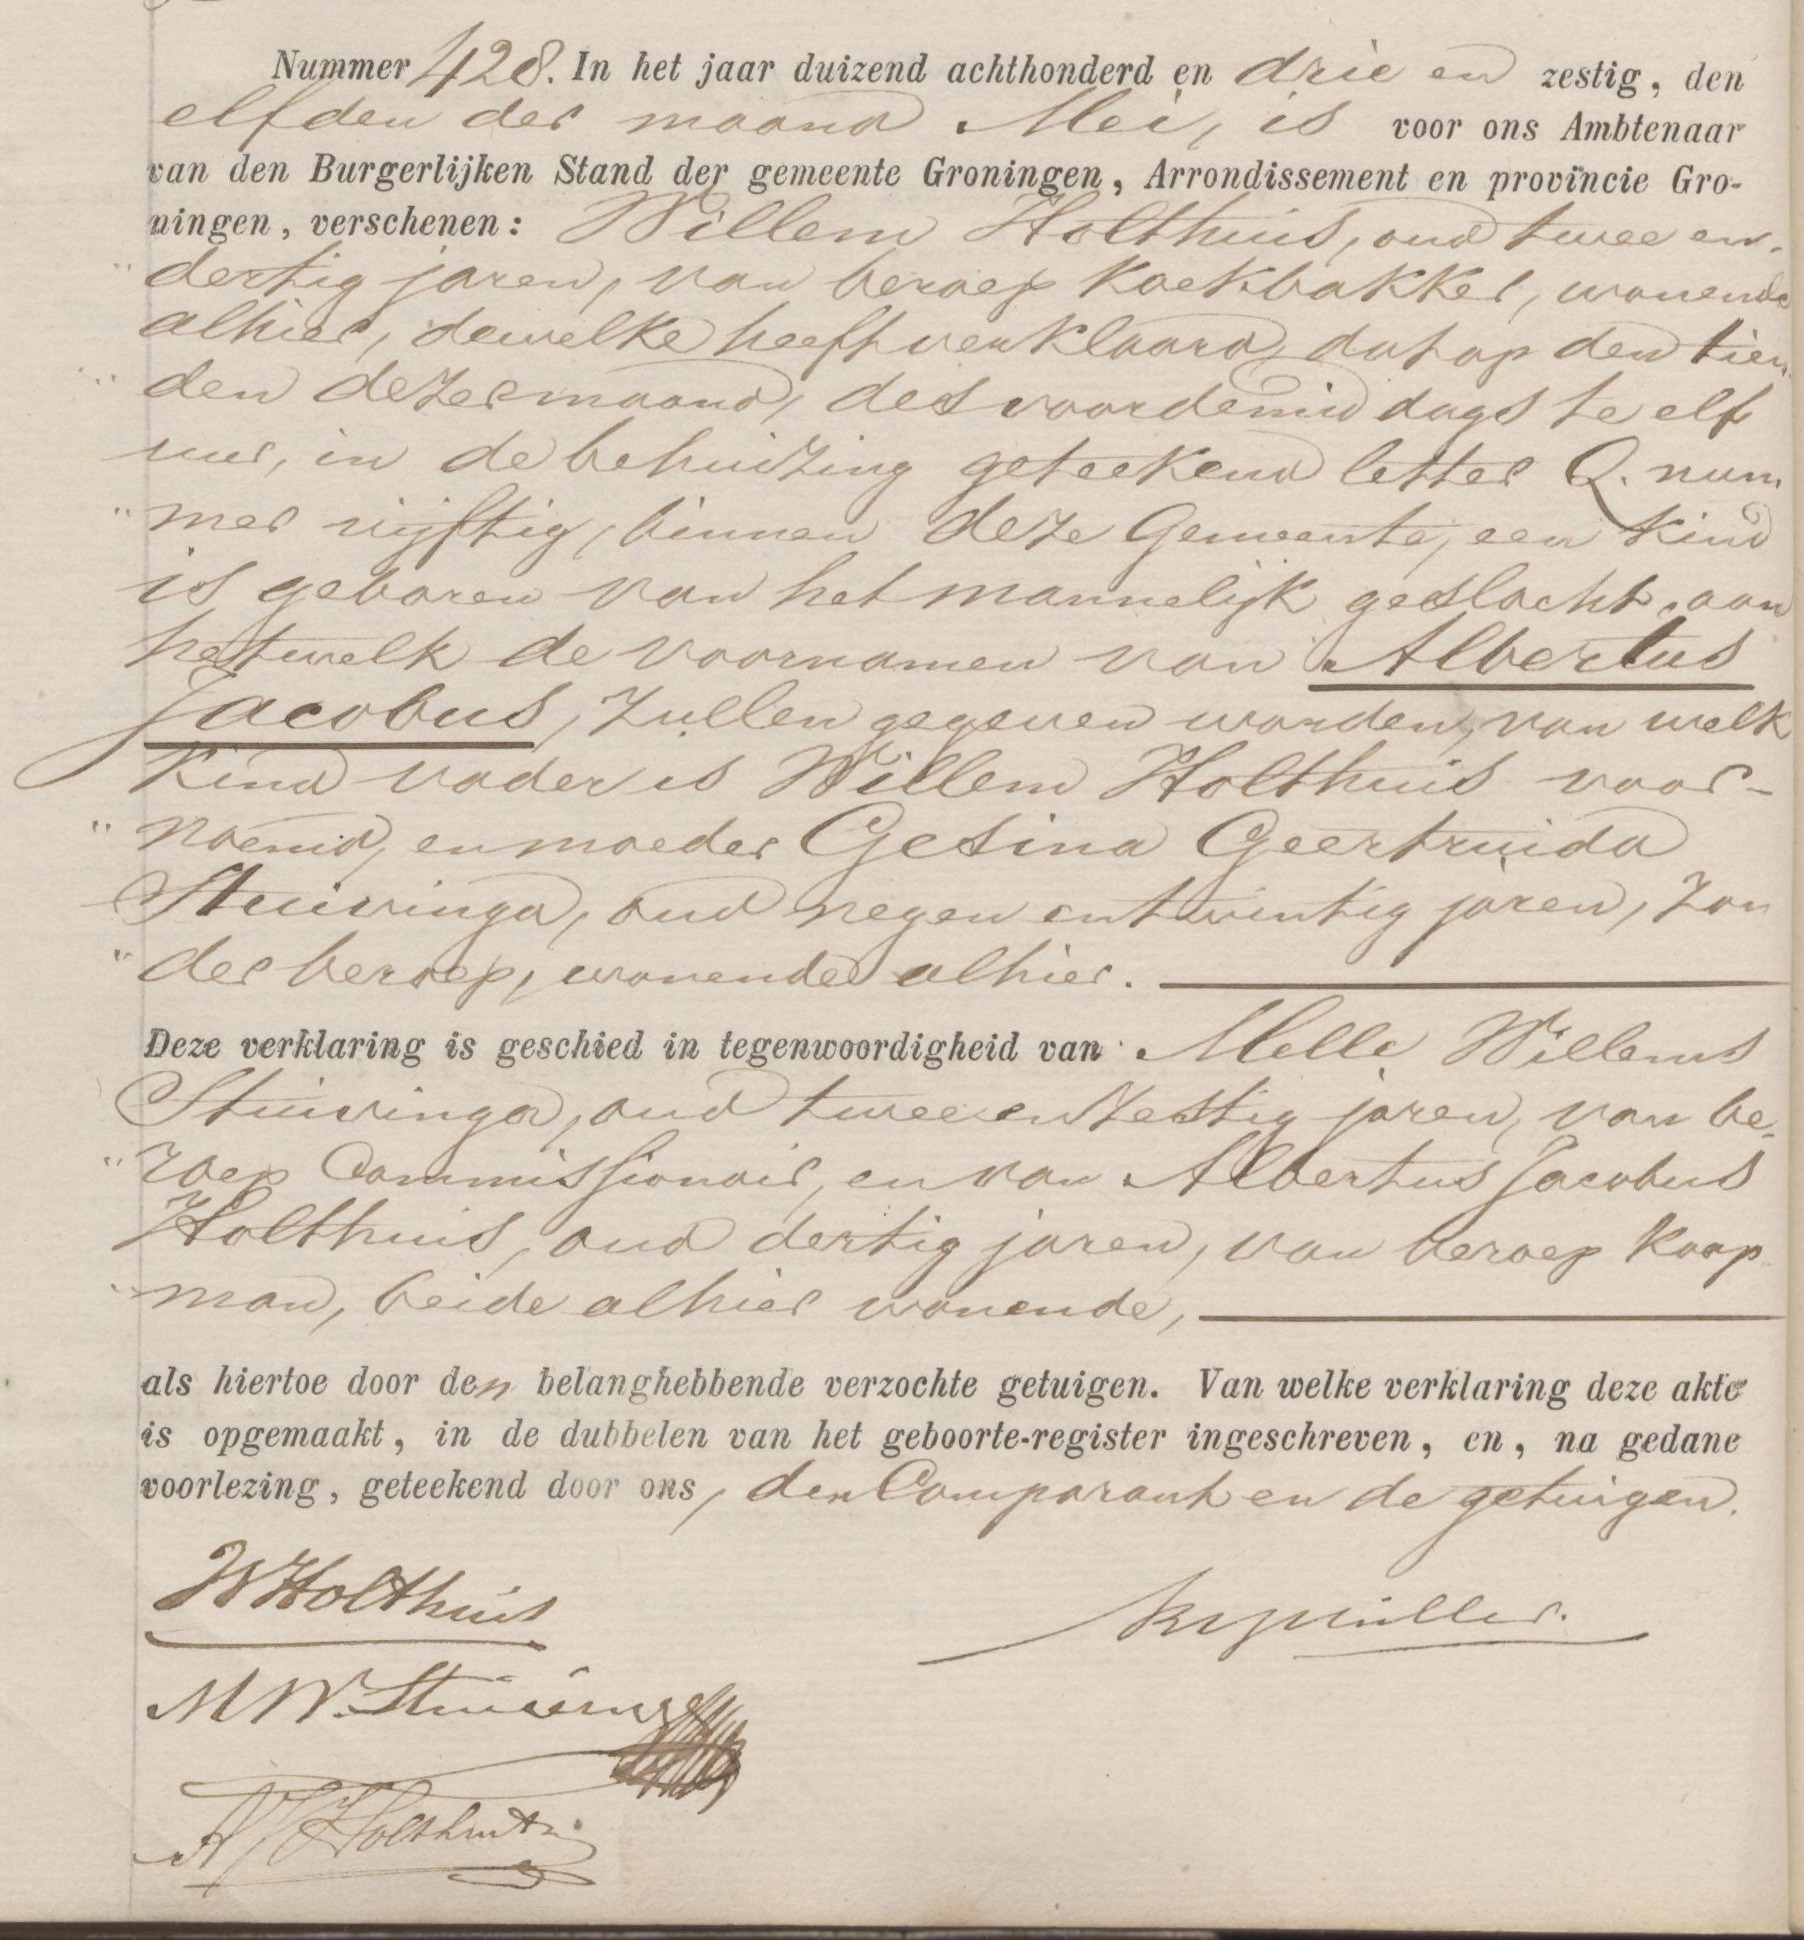 Nummer 428. In het jaar duizend achthonderd en drie en zestig, den
elfden der maand Mei, is voor ons Ambtenaar
van den Burgerlijken Stand der gemeente Groningen, Arrondissement en provincie Gro-
ningen, verschenen: Willem Holthuis, oud twee en
dertig jaren, van beroep koekbakker, wonende
alhier, dewelke heeft verklaard, dat op den tien
den dezer maand, des voordemiddags te elf
ure, in de behuizing geteekend letter Q. num
" mer vijftig, binnen deze Gemeente, een kind
is geboren van het mannelijk geslacht, aan
hetwelk de voornamen van Albertus
Jacobus, zullen gegeven worden, van welk
kind vader is Willem Holthuis voor-
" noemd, en moeder Gesina Geertruida
Stuivinga, oud negen en twintig jaren, zon
" der beroep, wonende alhier.
Deze verklaring is geschied in tegenwoordigheid van Melle Willems
Stuivinga, oud twee en zestig jaren, van be-
" roep Commissionair, en van Albertus Jacobus
Holthuis, oud dertig jaren, van beroep koop
" man, beide alhier wonende,
als hiertoe door den belanghebbende verzochte getuigen. Van welke verklaring deze akte
is opgemaakt, in de dubbelen van het geboorte-register ingeschreven, en, na gedane
voorlezing, geteekend door ons, den Comparant en de getuigen.
W Holthuis
M W. Stuivinga
A J Holthuis